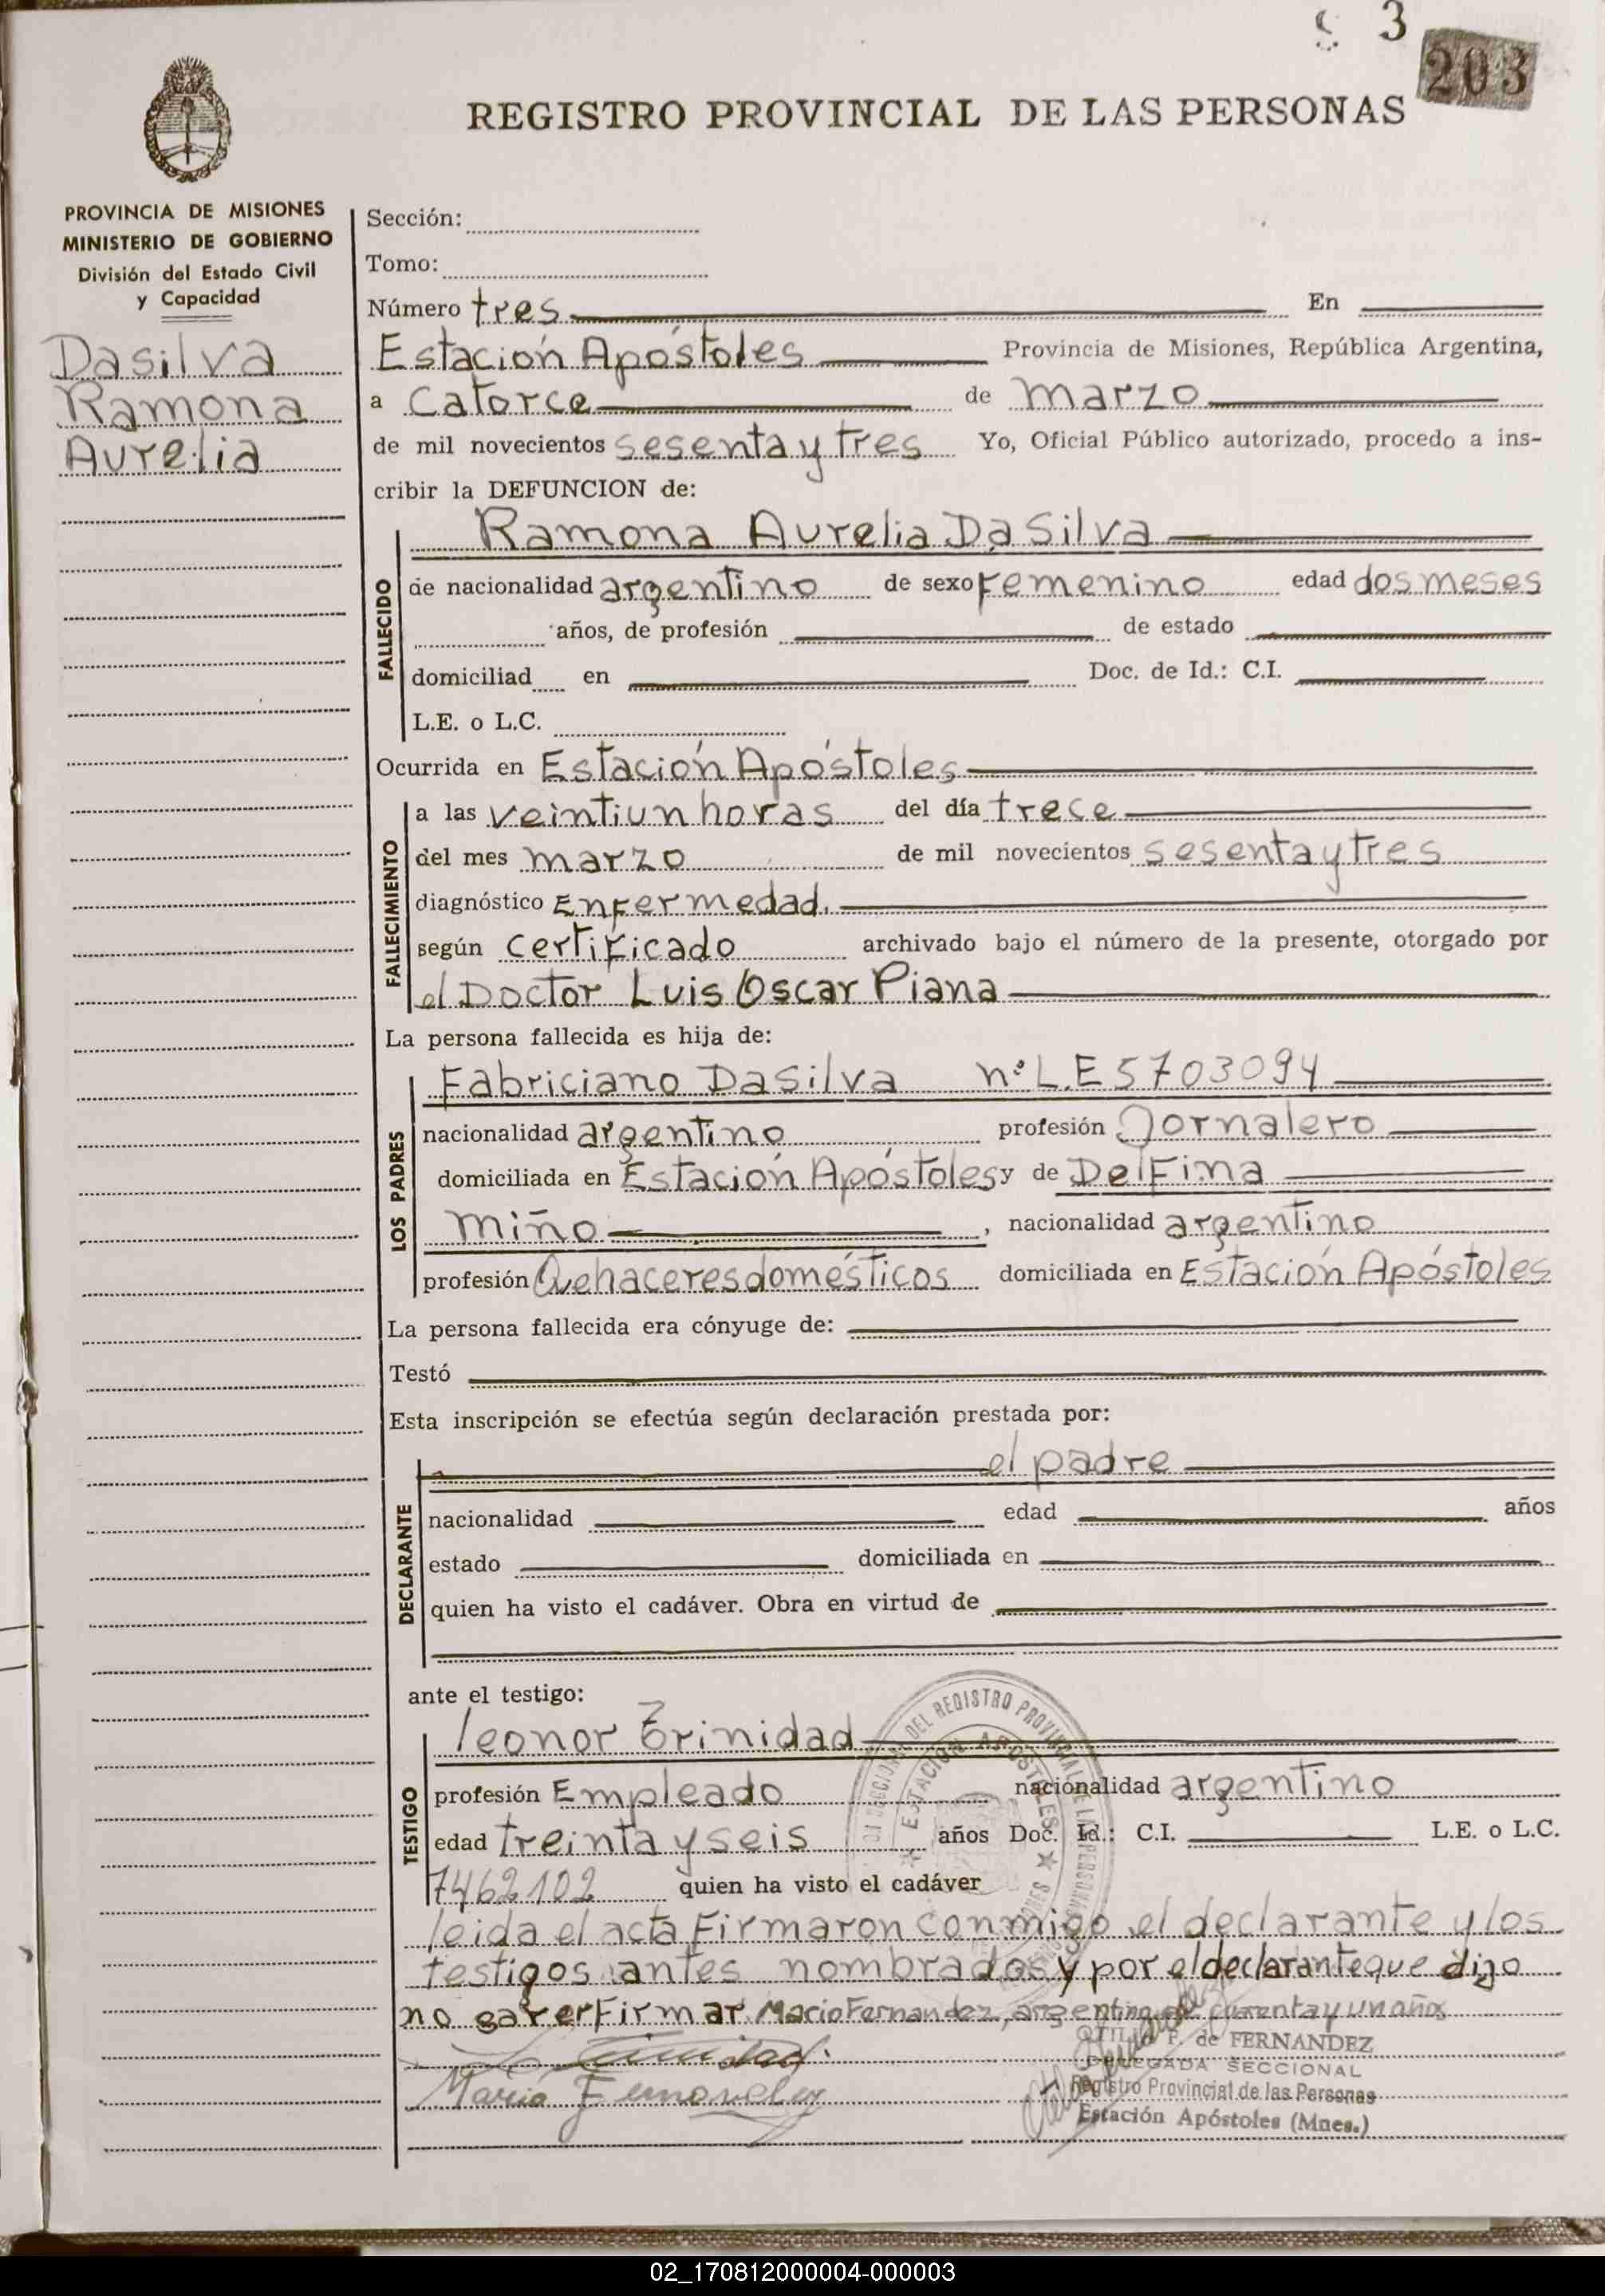 3
203
REGISTRO PROVINCIAL DE LAS PERSONAS
PROVINCIA DE MISIONES
MINISTERIO DE GOBIERNO
División del Estado Civil
y Capacidad
Dasilva
Ramona
Aurelia
Sección:
Tomo:
Número tres En
Estación Apóstoles Provincia de Misiones, República Argentina,
a Catorce de marzo
de mil novecientos sesenta y tres Yo, Oficial Público autorizado, procedo a ins-
cribir la DEFUNCION de:
FALLECIDO
Ramona Aurelia DaSilva
de nacionalidad argentino de sexo Femenino edad dos meses
años, de profesión de estado
domiciliad en Doc. de Id.: C.I.
L.E. o L.C.
Ocurrida en Estación Apóstoles
FALLECIMIENTO
a las veintiun horas del día trece
del mes marzo de mil novecientos sesenta y tres
diagnóstico Enfermedad.
según certificado archivado bajo el número de la presente, otorgado por
el Doctor Luis Oscar Piana
La persona fallecida es hija de:
LOS PADRES
Fabriciano DaSilva nº L.E 5703094
nacionalidad argentino profesión Jornalero
domiciliada en Estación Apóstoles y de Delfina
miño , nacionalidad argentino
profesión Quehaceres domésticos domiciliada en Estación Apóstoles
La persona fallecida era cónyuge de:
Testó
Esta inscripción se efectúa según declaración prestada por:
DECLARANTE
el padre
nacionalidad edad años
estado domiciliada en
quien ha visto el cadáver. Obra en virtud de
ante el testigo:
TESTIGO
leonor Trinidad
profesión Empleado nacionalidad argentino
edad treinta y seis años Doc. Id.: C.I. L.E. o L.C.
7462102 quien ha visto el cadáver
leida el acta Firmaron conmigo el declarante y los
testigos antes nombrados y por el declarante que dijo
no saver Firmar Mario Fernandez, argentino de cuarenta y un años
Trinidad
Mario Fernandez
F. de FERNANDEZ
DELEGADA SECCIONAL
Registro Provincial de las Personas
Estación Apóstoles (Mnes.)
DEL REGISTRO PROVINCIAL DE LAS PERSONAS
ESTACION APOSTOLES
MISIONES
02_170812000004-000003